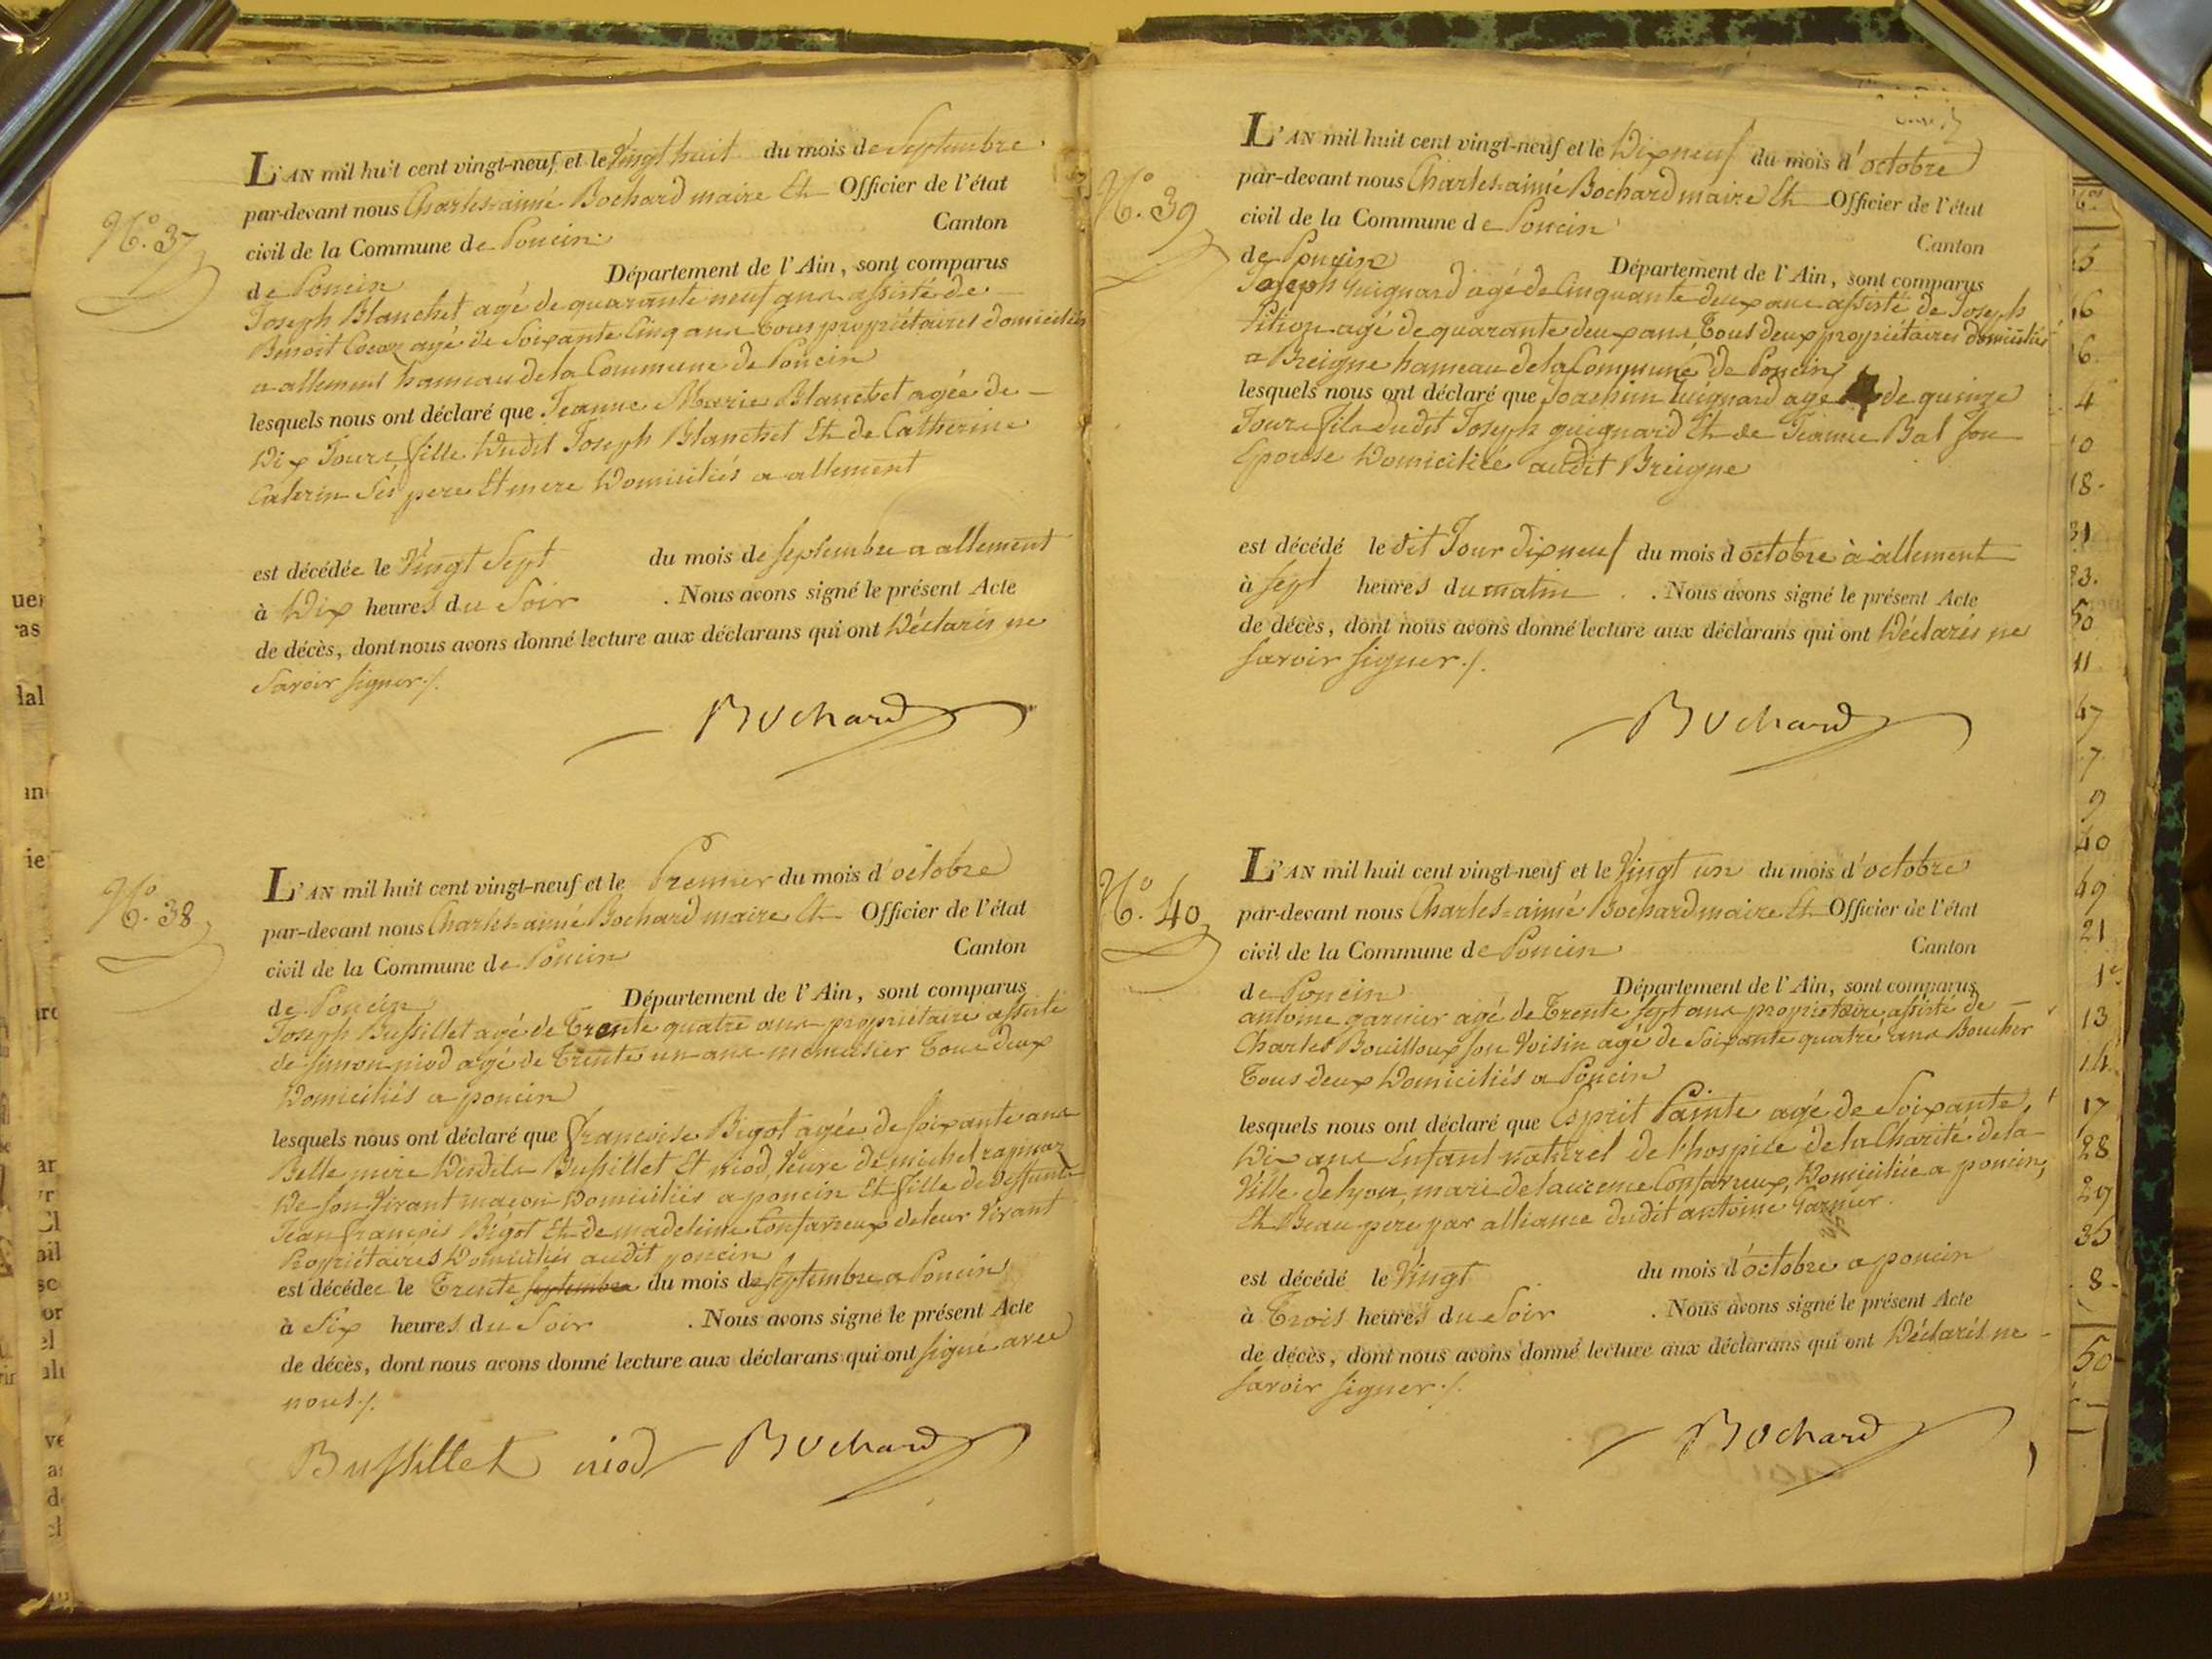 N.º 37
L'AN mil huit cent vingt-neuf et le Vingt huit du mois de Septembre
par-devant nous Charles=aimé Bochard maire Et Officier de l'état
civil de la Commune de Poncin Canton
de Poncin Département de l'Ain, sont comparus
Joseph Blanchet agé de quarante neuf ans assisté de
Benoit Cocoz agé de Soixante Cinq ans tous propriétaires domiciliés
a allement hameau de la Commune de Poncin
lesquels nous ont déclaré que Jeanne Marie Blanchet agée de
Dix Jours fille Dudit Joseph Blanchet Et de Catherine
Caterin Ses pere Et mere Domiciliés a allement
est décédée le Vingt Sept du mois de septembre a allement
à Dix heures du Soir . Nous avons signé le présent Acte
de décès, dont nous avons donné lecture aux déclarans qui ont Déclarés ne
Savoir signer ./.
Bochard
N.º 38
L'AN mil huit cent vingt-neuf et le Premier du mois d'octobre
par-devant nous Charles=aimé Bochard maire Et Officier de l'état
civil de la Commune de Poncin Canton
de Poncin Département de l'Ain, sont comparus
Joseph Bussillet agé de Trente quatre ans propriétaire assisté
de Simon niod agé de Trente un ans menuisier Tous deux
Domiciliés a poncin
lesquels nous ont déclaré que françoise Bigot agée de soixante ans
Belle mere Desdits Bussillet Et niod, Veuve de michel
De son Vivant maçon Domiciliés a poncin Et fille de Deffunts
Jean françois Bigot Et de madeleine Confavreux de leur Vivant
Propriétaires Domiciliés audit poncin
est décédée le Trente septembre du mois de septembre a Poncin
à Six heures du Soir . Nous avons signé le présent Acte
de décès, dont nous avons donné lecture aux déclarans qui ont signé avec
nous ./.
Bussillet niod Bochard
N.º 39
L'AN mil huit cent vingt-neuf et le Dixneuf du mois d'octobre
par-devant nous Charles=aimé Bochard maire Et Officier de l'état
civil de la Commune de Poncin Canton
de Poncin Département de l'Ain, sont comparus
Joseph Guignard agé de Cinquante deux ans assisté de Joseph
Pition agé de quarante deux ans Tous deux propriétaires domiciliés
a Breigne hameau de la Commune de Poncin
lesquels nous ont déclaré que Joachim Guignard agé de quinze
Jours fils dudit Joseph guignard Et de Jeanne Bal son
Epouse Domiciliée audit Breigne
est décédé le dit Jour dixneuf du mois d'octobre à allement
à sept heures du matin . Nous avons signé le présent Acte
de décès, dont nous avons donné lecture aux déclarans qui ont Déclarés ne
savoir signer ./.
Bochard
N.º 40
L'AN mil huit cent vingt-neuf et le Vingt un du mois d'octobre
par-devant nous Charles=aimé Bochard maire Et Officier de l'état
civil de la Commune de Poncin Canton
de Poncin Département de l'Ain, sont comparus
antoine garnier agé de Trente sept ans propriétaire assisté de
Charles Bouilloux son Voisin agé de Soixante quatre ans Boucher
Tous deux Domiciliés a Poncin
lesquels nous ont déclaré que Esprit Painte agé de Soixante
Dix ans Enfant naturel de l'hospice de la Charité de la
Ville de lyon, mari de laurence Confavreux, Domiciliée a poncin,
Et Beau pere par alliance dudit antoine Garnier.
est décédé le Vingt du mois d'octobre a poncin
à Trois heures du Soir . Nous avons signé le présent Acte
de décès, dont nous avons donné lecture aux déclarans qui ont Déclarés ne
savoir signer ./.
Bochard
16
6
4
10
18
31
23
50
11
47
7
9
40
49
21
1
13
14
17
28
29
35
8
50